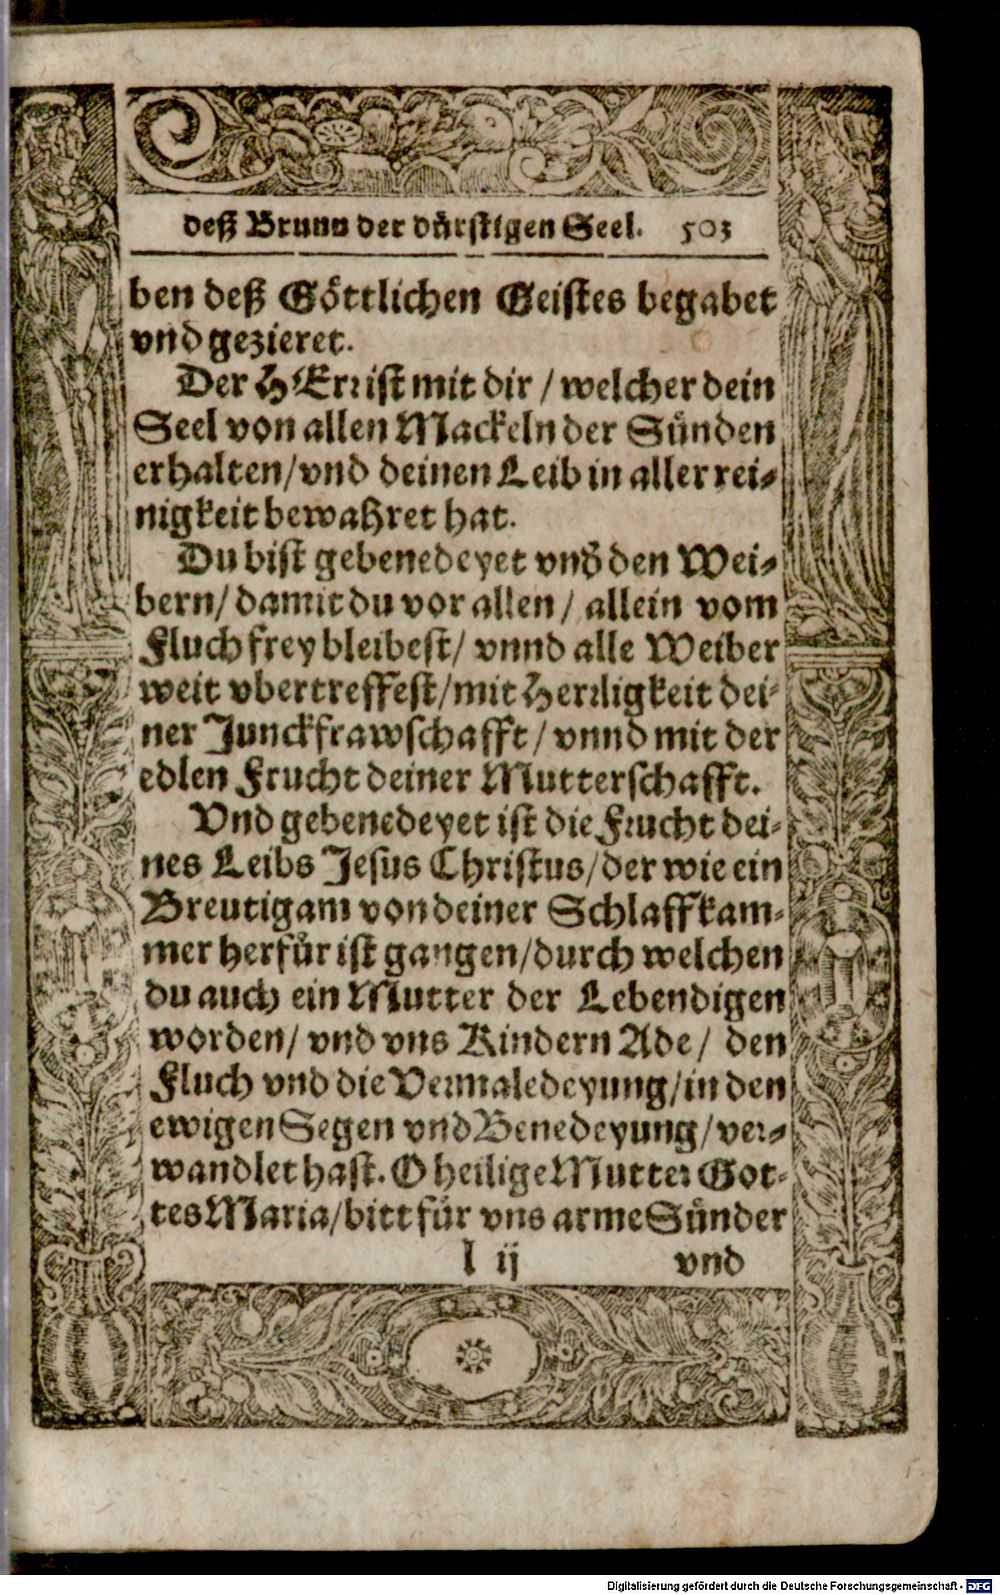 deß Brunn der dürstigen Seel. 503
ben deß Göttlichen Geistes begabet
vnd gezieret.
Der HErr ist mit dir / welcher dein
Seel von allen Mackeln der Sünden
erhalten/vnd deinen Leib in aller rei-
nigkeit bewahret hat.
Du bist gebenedeyet vnd̛ den Wei-
bern/ damit du vor allen / allein vom
Fluch frey bleibest/ vnnd alle Weiber
weit vbertreffest/mit Herrligkeit dei-
ner Junckfrawschafft / vnnd mit der
edlen Frucht deiner Mutterschafft.
Vnd gebenedeyet ist die Frucht dei-
nes Leibs Jesus Christus/der wie ein
Breutigam von deiner Schlaffkam-
mer herfür ist gangen/durch welchen
du auch ein Mutter der Lebendigen
worden/ vnd vns Kindern Ade / den
Fluch vnd die Vermaledeyung/in den
ewigen Segen vnd Benedeyung/ver-
wandlet hast. O heilige Mutter Got-
tes Maria/bitt für vns arme Sünder
l ij vnd
Digitalisierung gefördert durch die Deutsche Forschungsgemeinschaft - DFG